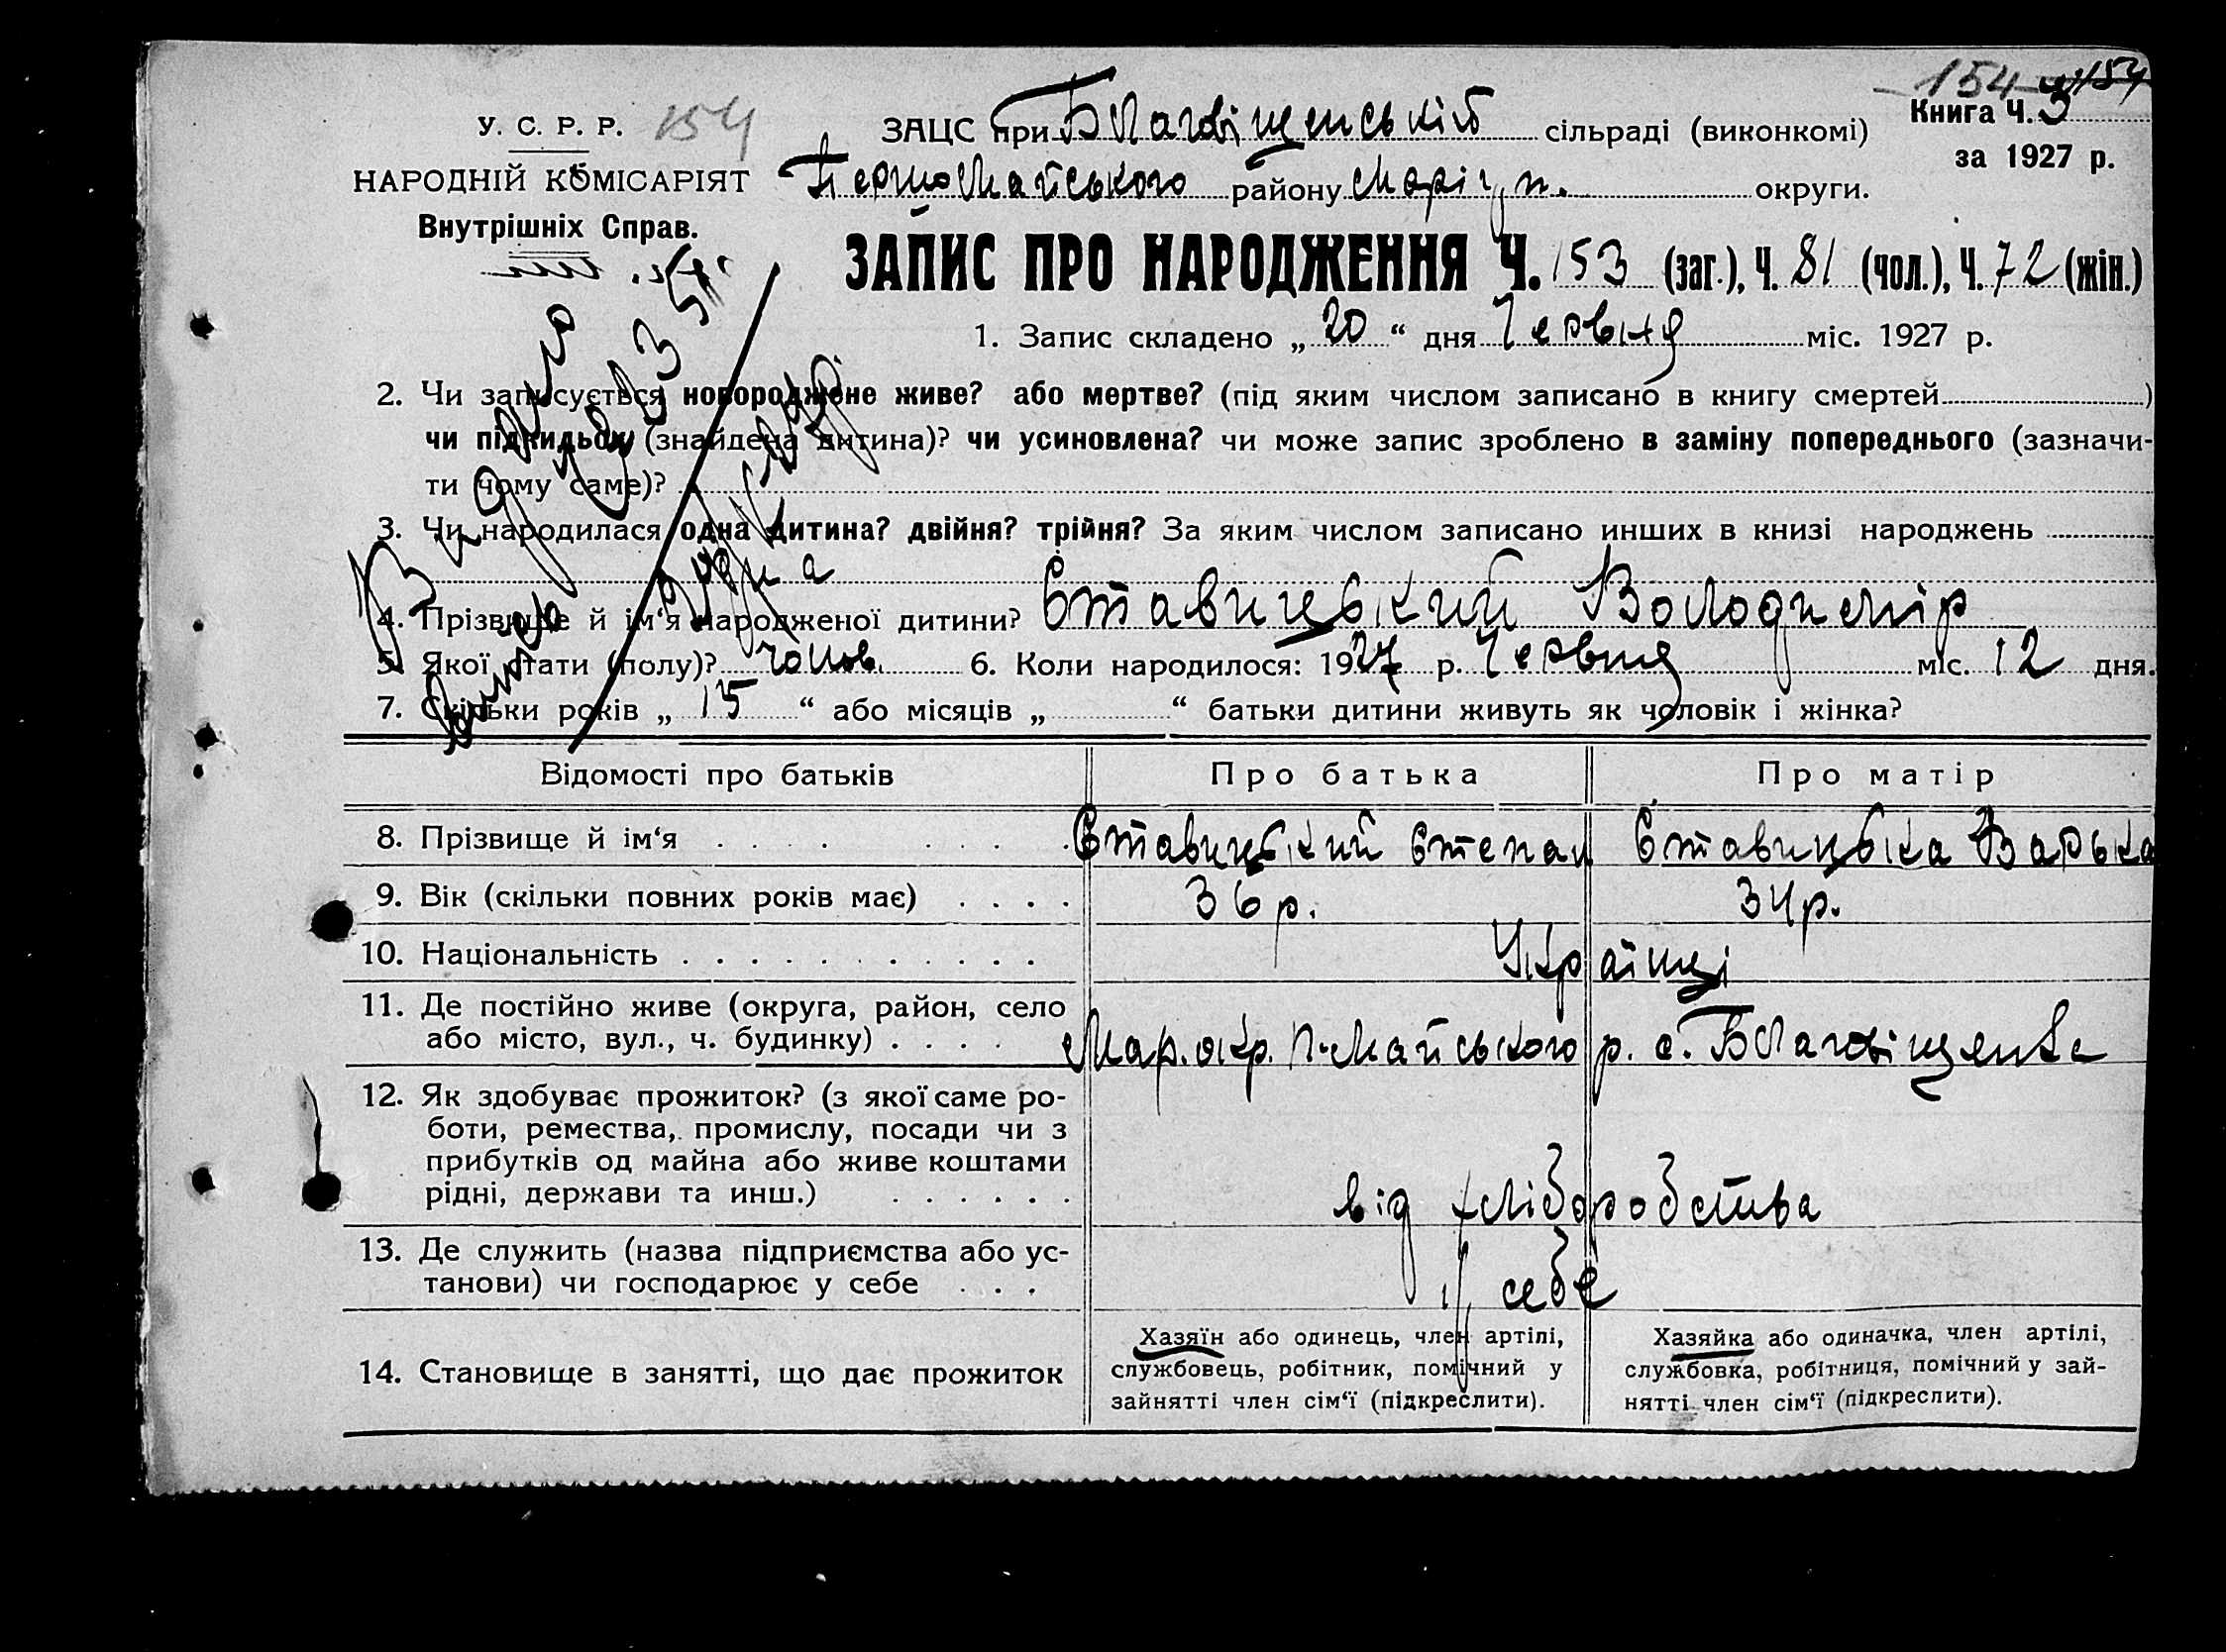 154
У. С. Р. Р. 154
ЗАЦС при Благовіщенській сільраді (виконкомі)
Книга Ч. 3
за 1927 р.
НАРОДНІЙ КОМІСАРІЯТ
Внутрішніх Справ.
Першомайського району Маріуп. округи.
ЗАПИС ПРО НАРОДЖЕННЯ Ч. 153 (заг.), Ч. 81 (чол.), Ч. 72 (жін.)
1. Запис складено „ 20 “ дня Червня міс. 1927 р.
2. Чи записується новороджене живе? або мертве? (під яким числом записано в книгу смертей )
чи підкидьок (знайдена дитина)? чи усиновлена? чи може запис зроблено в заміну попереднього (зазначи-
ти чому саме)?
3. Чи народилася одна дитина? двійня? трійня? За яким числом записано инших в книзі народжень
одна
4. Прізвище й ім‘я народженої дитини? Ставицький Володимір
5. Якої стати (полу)? чолов. 6. Коли народилося: 1927 р. Червня міс. 12 дня.
7. Скільки років „ 15 “ або місяців „ “ батьки дитини живуть як чоловік і жінка?
Видано
Відомості про батьків Про батька Про матір
8. Прізвище й ім‘я Ставицький Степан Ставицька Варька
9. Вік (скільки повних років має) 36 р. 34 р.
10. Національність Українці
11. Де постійно живе (округа, район, село
або місто, вул., ч. будинку) Мар. окр. П-Майського р. с. Благовіщенка
12. Як здобуває прожиток? (з якої саме ро-
боти, ремества, промислу, посади чи з
прибутків од майна або живе коштами
рідні, держави та инш.) від хліборобства
13. Де служить (назва підприємства або ус-
танови) чи господарює у себе у себе
14. Становище в занятті, що дає прожиток
Хазяїн або одинець, член артілі,
службовець, робітник, помічний у
зайнятті член сім‘ї (підкреслити).
Хазяйка або одиначка, член артілі,
службовка, робітниця, помічний у зай-
нятті член сім‘ї (підкреслити).